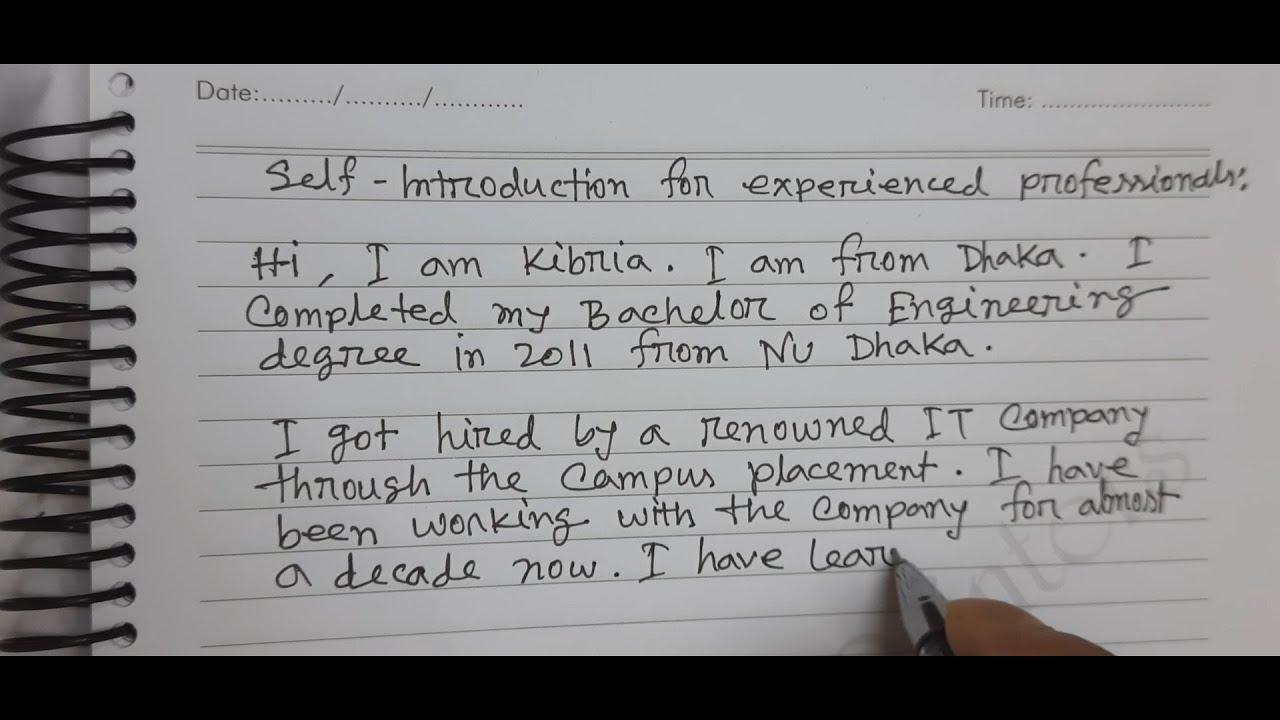 Date:........./........../............
Time: ........................
Self-Introduction for experienced professionals:
Hi, I am Kibria. I am from Dhaka. I
Completed my Bachelor of Engineering
degree in 2011 from NU Dhaka.
I got hired by a renowned IT Company
through the Campus placement. I have
been working with the Company for almost
a decade now. I have lear